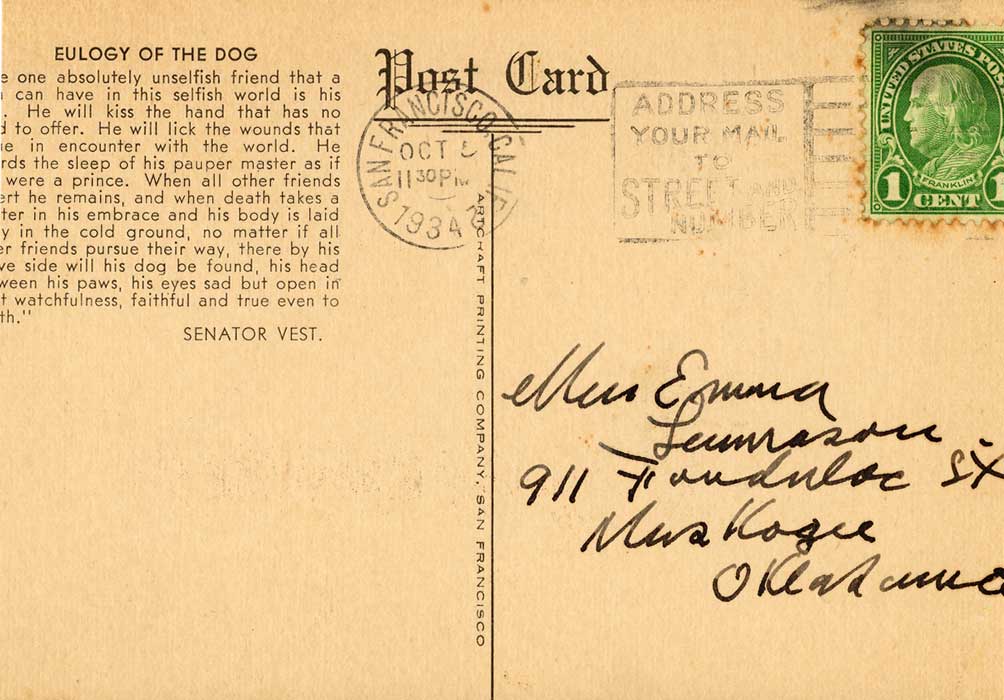 EULOGY OF THE DOG
e one absolutely unselfish friend that a
can have in this selfish world is his
. He will kiss the hand that has no
d to offer. He will lick the wounds that
e in encounter with the world. He
rds the sleep of his pauper master as if
were a prince. When all other friends
ert he remains, and when death takes a
ter in his embrace and his body is laid
y in the cold ground, no matter if all
er friends pursue their way, there by his
ve side will his dog be found, his head
ween his paws, his eyes sad but open in
t watchfulness, faithful and true even to
th."
SENATOR VEST.
Post Card
SAN FRANCISCO, CALIF.
OCT 5
11 30 PM
1934
ADDRESS
YOUR MAIL
TO
STREET AND
NUMBER
UNITED STATES POS
FRANKLIN
1 CENT 1
ARTCRAFT PRINTING COMPANY, SAN FRANCISCO
Miss Emma
911 Fondulac St
Muskogee
Oklahoma